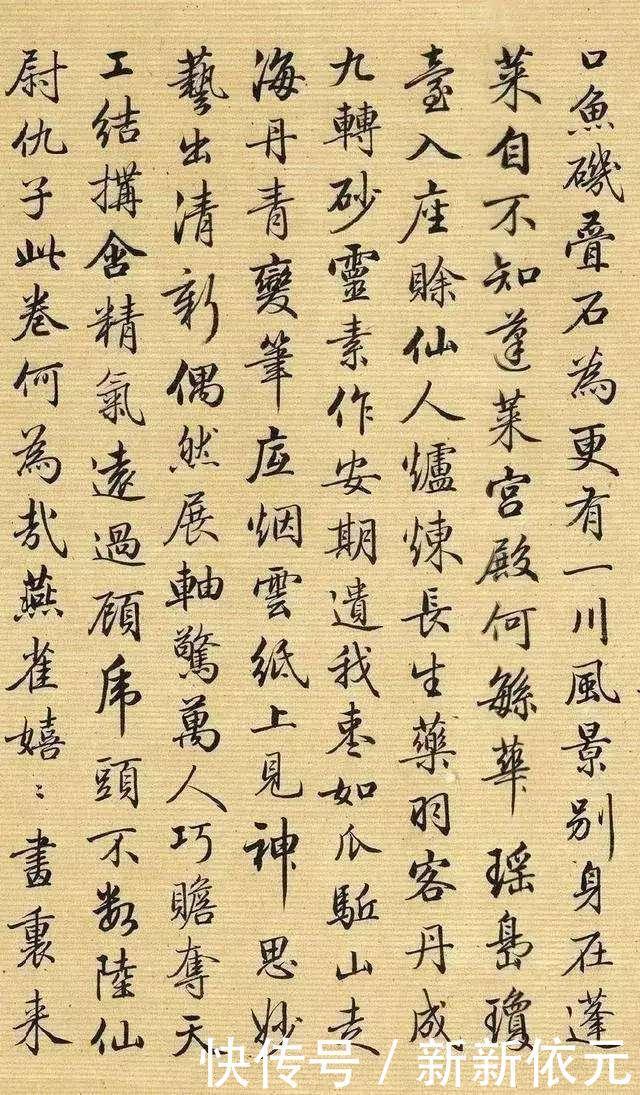 口魚磯疊石為更有一川風景別身在蓬
萊自不知蓬萊宮殿何繇華瑶島瓊
臺入座賒仙人爐煉長生藥羽客丹成
九轉砂靈素作安期遺我棗如瓜駈山走
海丹青變筆底烟雲紙上見神思妙
藝出清新偶然展軸驚萬人巧贍奪天
工結搆含精氣遠過顧虎頭不数陸仙
尉仇子此卷何為哉燕雀嬉〻畫裏来
快传号 / 新新依元